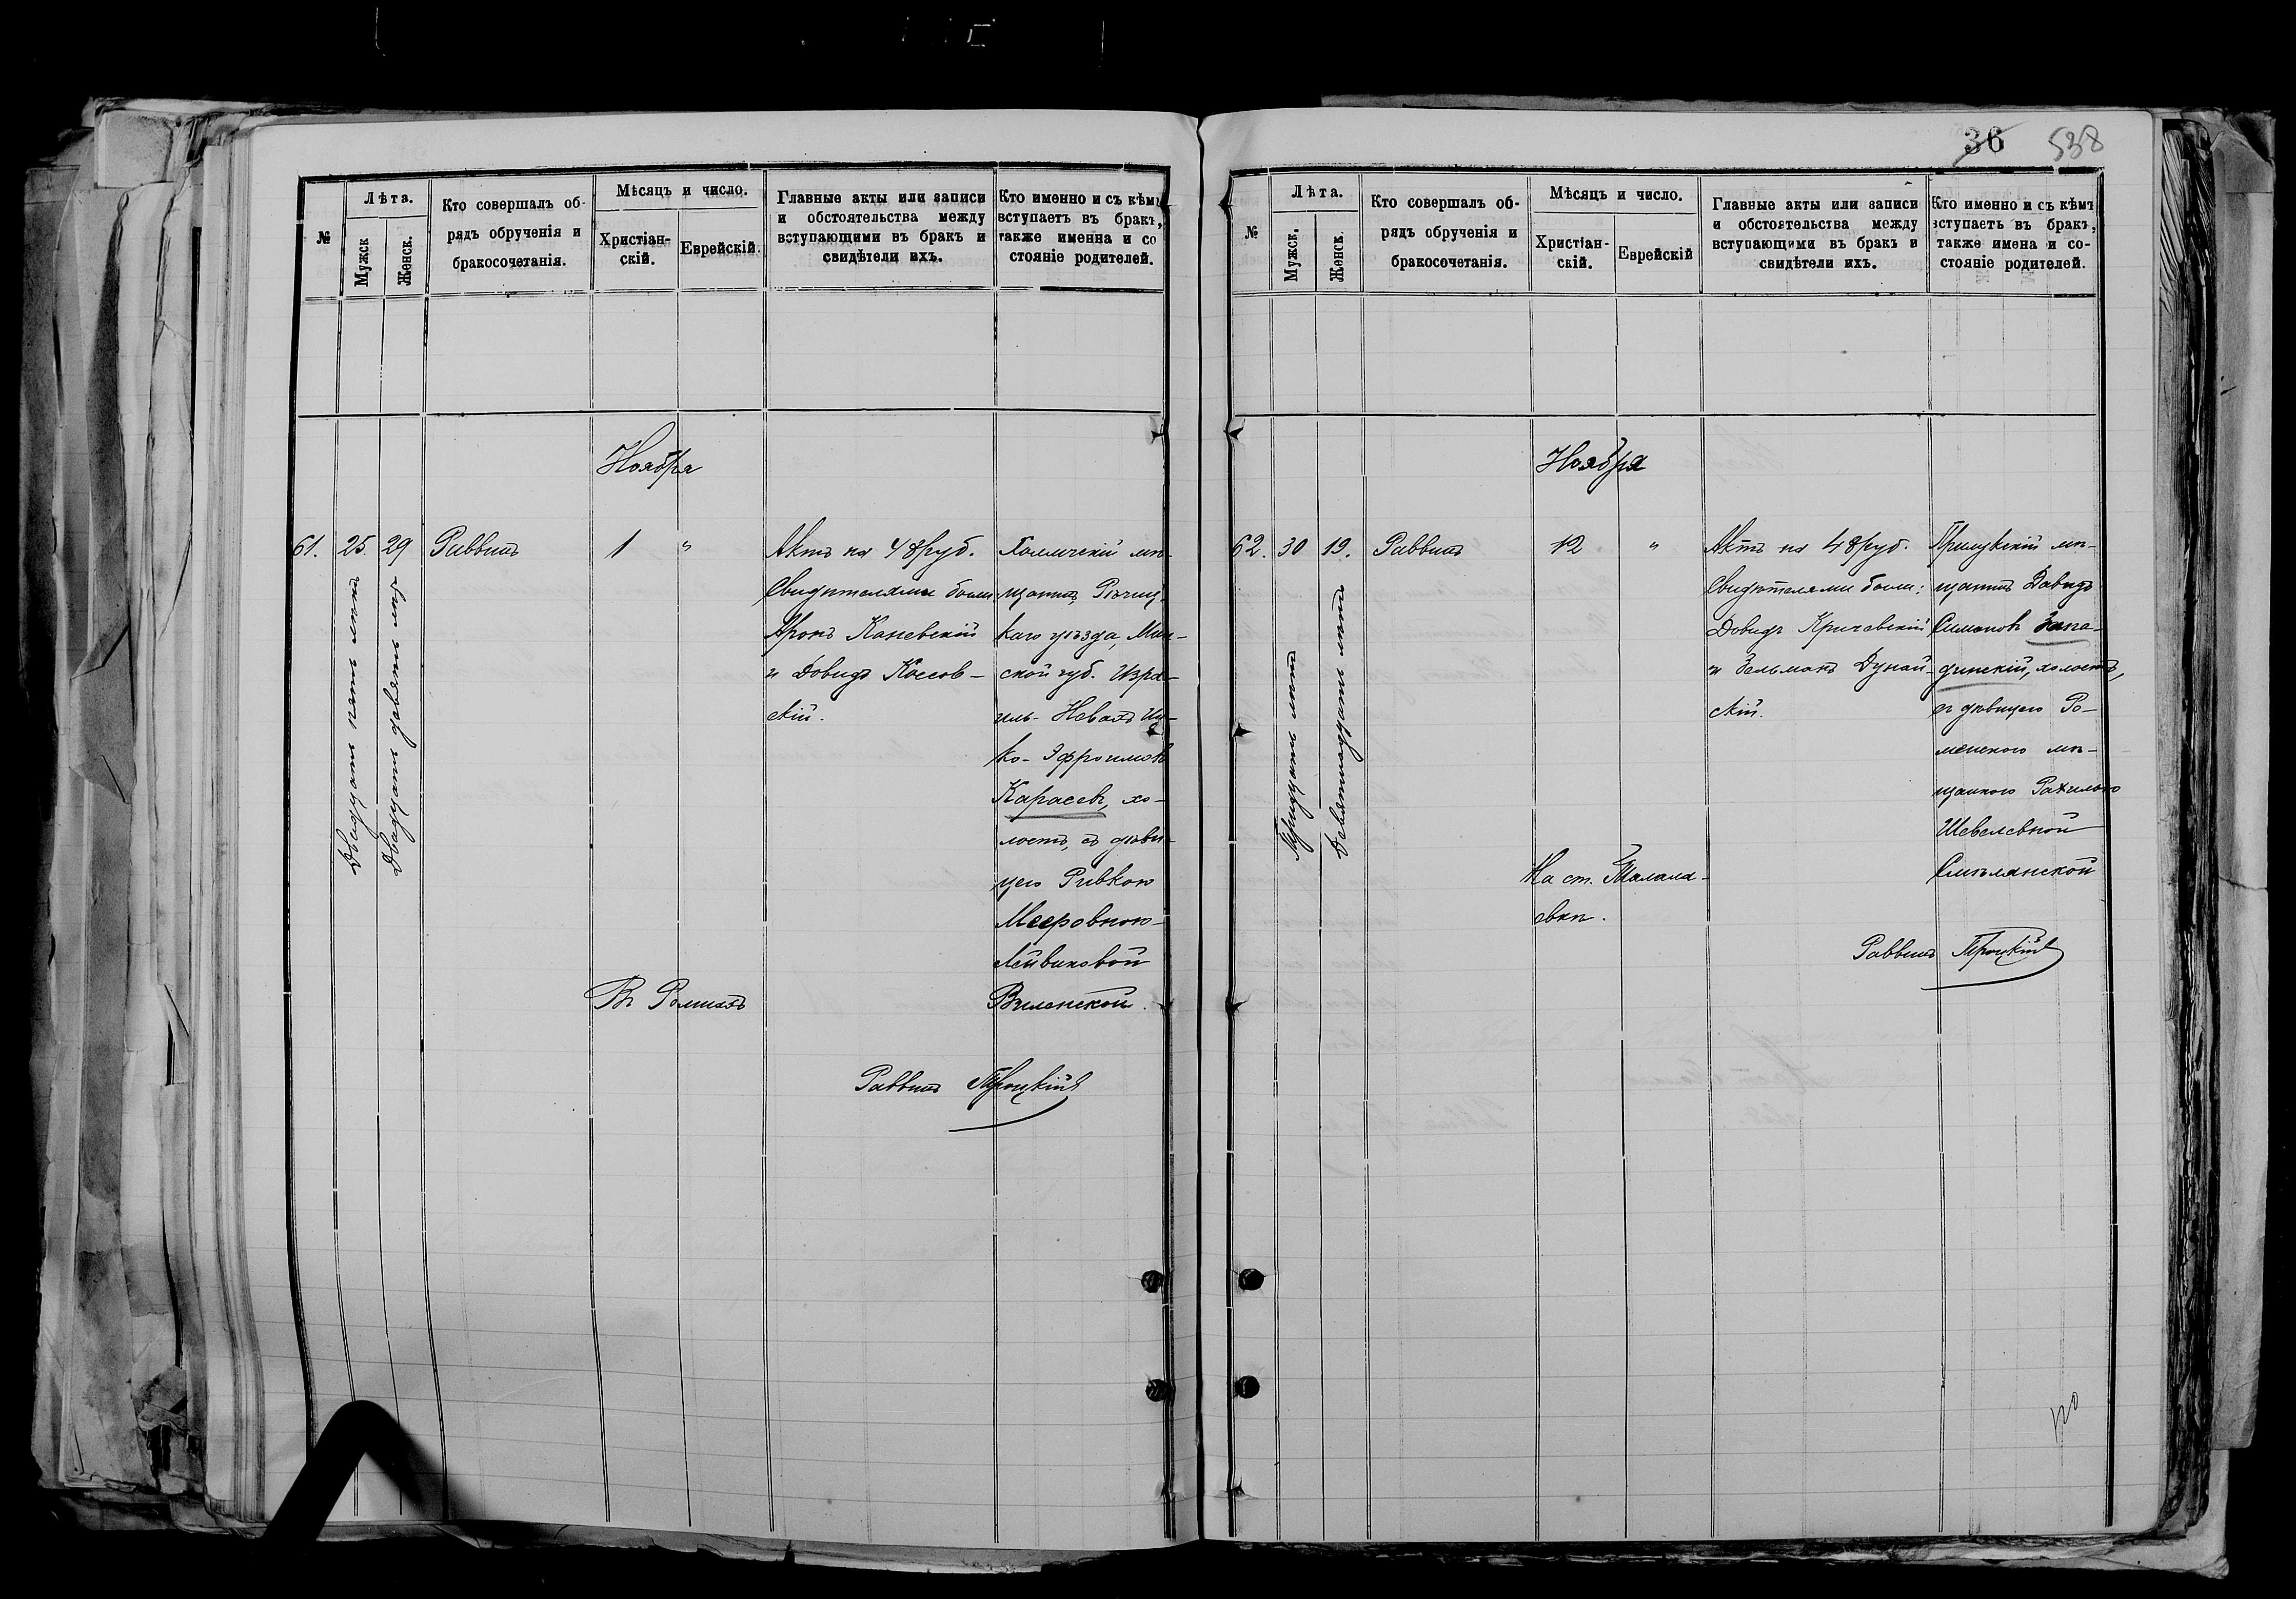 №
Лѣта.
Мужск
Женск.
Кто совершалъ об-
рядъ обрученія и
бракосочетанія.
Мѣсяцъ и число.
Христіан-
скій.
Еврейскій.
Главные акты или записи
и обстоятельства между
вступающими въ бракъ и
свидѣтели ихъ.
Кто именно и съ кѣмъ
вступаетъ въ бракъ,
также имена и со
стояніе родителей.
Ноября
61.
25.
29
Двадцать пять лѣтъ
Двадцать девять лѣтъ
Раввинъ
1
"
Актъ на 48 руб.
Свидѣтелями были
Аронъ Каневскій
и Довидъ Коссов-
скій.
Холмичскій мѣ-
щанинъ, Рѣчиц-
каго уѣзда, Мин-
ской губ. Изра-
иль-Невахъ Иц-
ко-Эфроимовъ
Карасевъ, хо-
лостъ, съ дѣви-
цею Ривкою
Мееровною-
Лейвиковой
Виленской.
Въ Ромнахъ
Раввинъ Троцкій
36
538
№
Лѣта.
Мужск.
Женск.
Кто совершалъ об-
рядъ обрученія и
бракосочетанія.
Мѣсяцъ и число.
Христіан-
скій.
Еврейскій
Главные акты или записи
и обстоятельства между
вступающими въ бракъ и
свидѣтели ихъ.
Кто именно и съ кѣмъ
вступаетъ въ бракъ,
также имена и со-
стояніе родителей.
Ноября
62.
30
19.
Тридцать лѣтъ
Девятнадцать лѣтъ
Раввинъ
12
"
Актъ на 48 руб.
Свидѣтелями были:
Довидъ Кричевскій
и Зельманъ Дунай-
скій.
Прилукскій мѣ-
щанинъ Давидъ
Симоновъ Запа-
динскій, холостъ,
съ дѣвицею Ро-
менскою мѣ-
щанкою Рахилью
Шевелевной
Смѣлянской
На ст. Талала-
евкѣ.
Раввинъ Троцкій